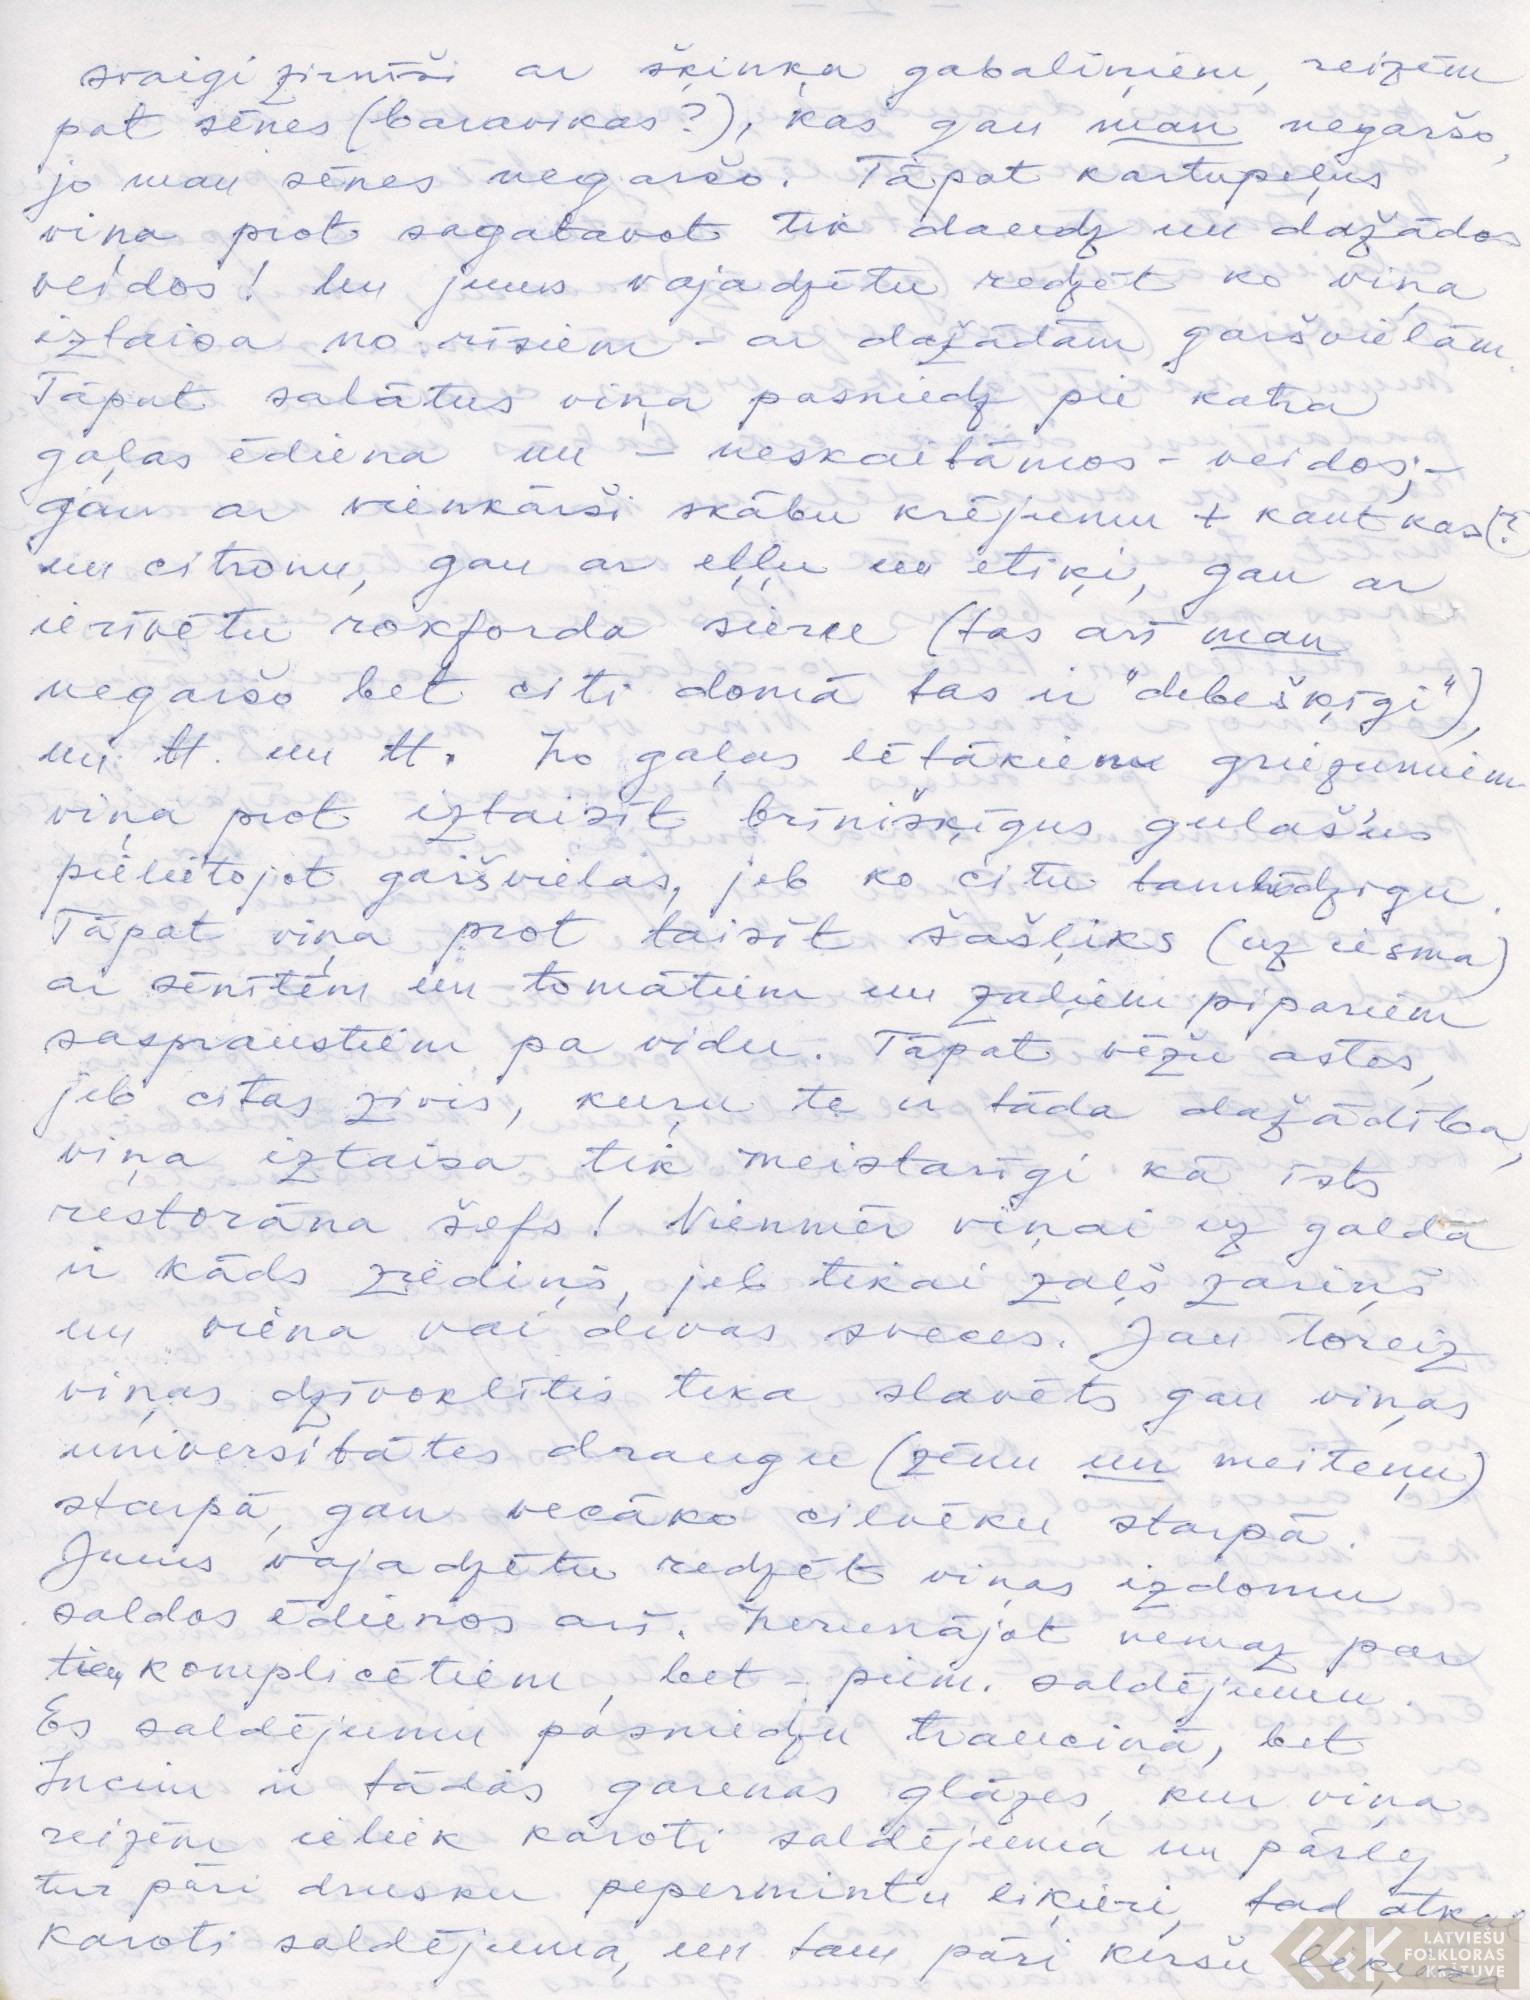 svaigi zirnīši ar šķiņķa gabaliņiem, reizēm
pat sēnes (baravikas?), kas gan man negaršo,
jo man sēnes negaršo. Tāpat kartupeļus
viņa prot sagatavot tik daudz un dažādos
veidos! Un jums vajadzētu redzēt ko viņa
iztaisa no rīsiem - ar dažādām garšvielām.
Tāpat salātus viņa pasniedz pie katra
gaļas ēdiena un - neskaitāmos - veidos; -
gan ar vienkārši skābu krējumu + kaut kas(?)
un citronu, gan ar eļļu un etiķi, gan ar
ierīvētu rokforda sieru (tas arī man
negaršo bet citi domā tas ir "debešķīgi"),
un tt. un tt. No gaļas lētākiem griezumiem
viņa prot iztaisīt brīnišķīgus gulaš'us
pielietojot garšvielas, jeb ko citu tamlīdzīgu.
Tāpat viņa prot taisīt šašļiks (uz iesma)
ar sēnītēm un tomātiem un zaļiem pipariem
saspraustiem pa vidu. Tāpat vēžu astes,
jeb citas zivis, kuŗu te ir tāda dažādība,
viņa iztaisa tik meistarīgi kā īsts
restorāna šefs! Vienmēr viņai uz galda
ir kāds ziediņš, jeb tikai zaļš zariņš
un viena vai divas sveces. Jau toreiz
viņas dzīvoklītis tika slavēts gan viņas
universitātes draugu (zēnu un meiteņu)
starpā, gan vecāko cilvēku starpā.
Jums vajadzētu redzēt viņas izdomu
saldos ēdienos arī. Nerunājot nemaz par
tiem komplicētiem, bet - piem. saldējumu.
Es saldējumu pasniedzu trauciņā, bet
Incim ir tādas garenas glāzes, kur viņa
reizēm ieliek karoti saldējuma un pārlej
tur pāri drusku pepermintu liķieri, tad atkal
karoti saldējuma, un tam pāri ķiršu liķiera
LATVIEŠU
FOLKLORAS
KRĀTUVE